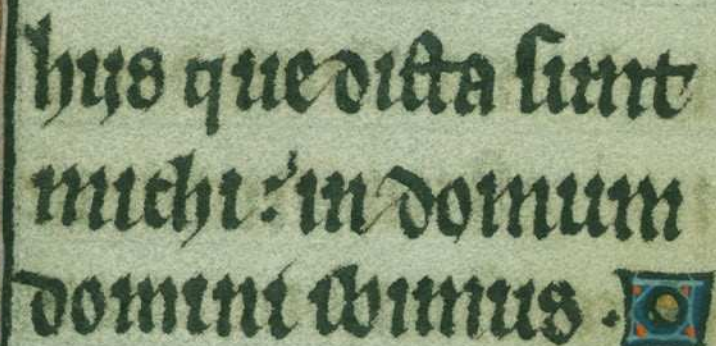 hijs que dicta sunt
michi : in domum
domini ibimus .